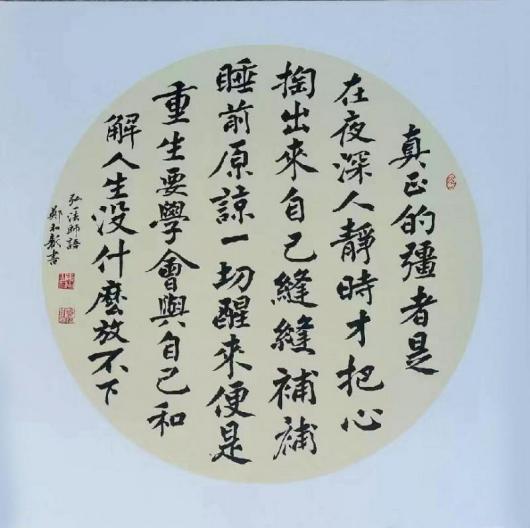 真正的彊者是
在夜深人靜時才把心
掏出來自己縫縫補補
睡前原諒一切醒來便是
重生要學會與自己和
解人生没什麽放不下
弘一法師語
鄭和新書